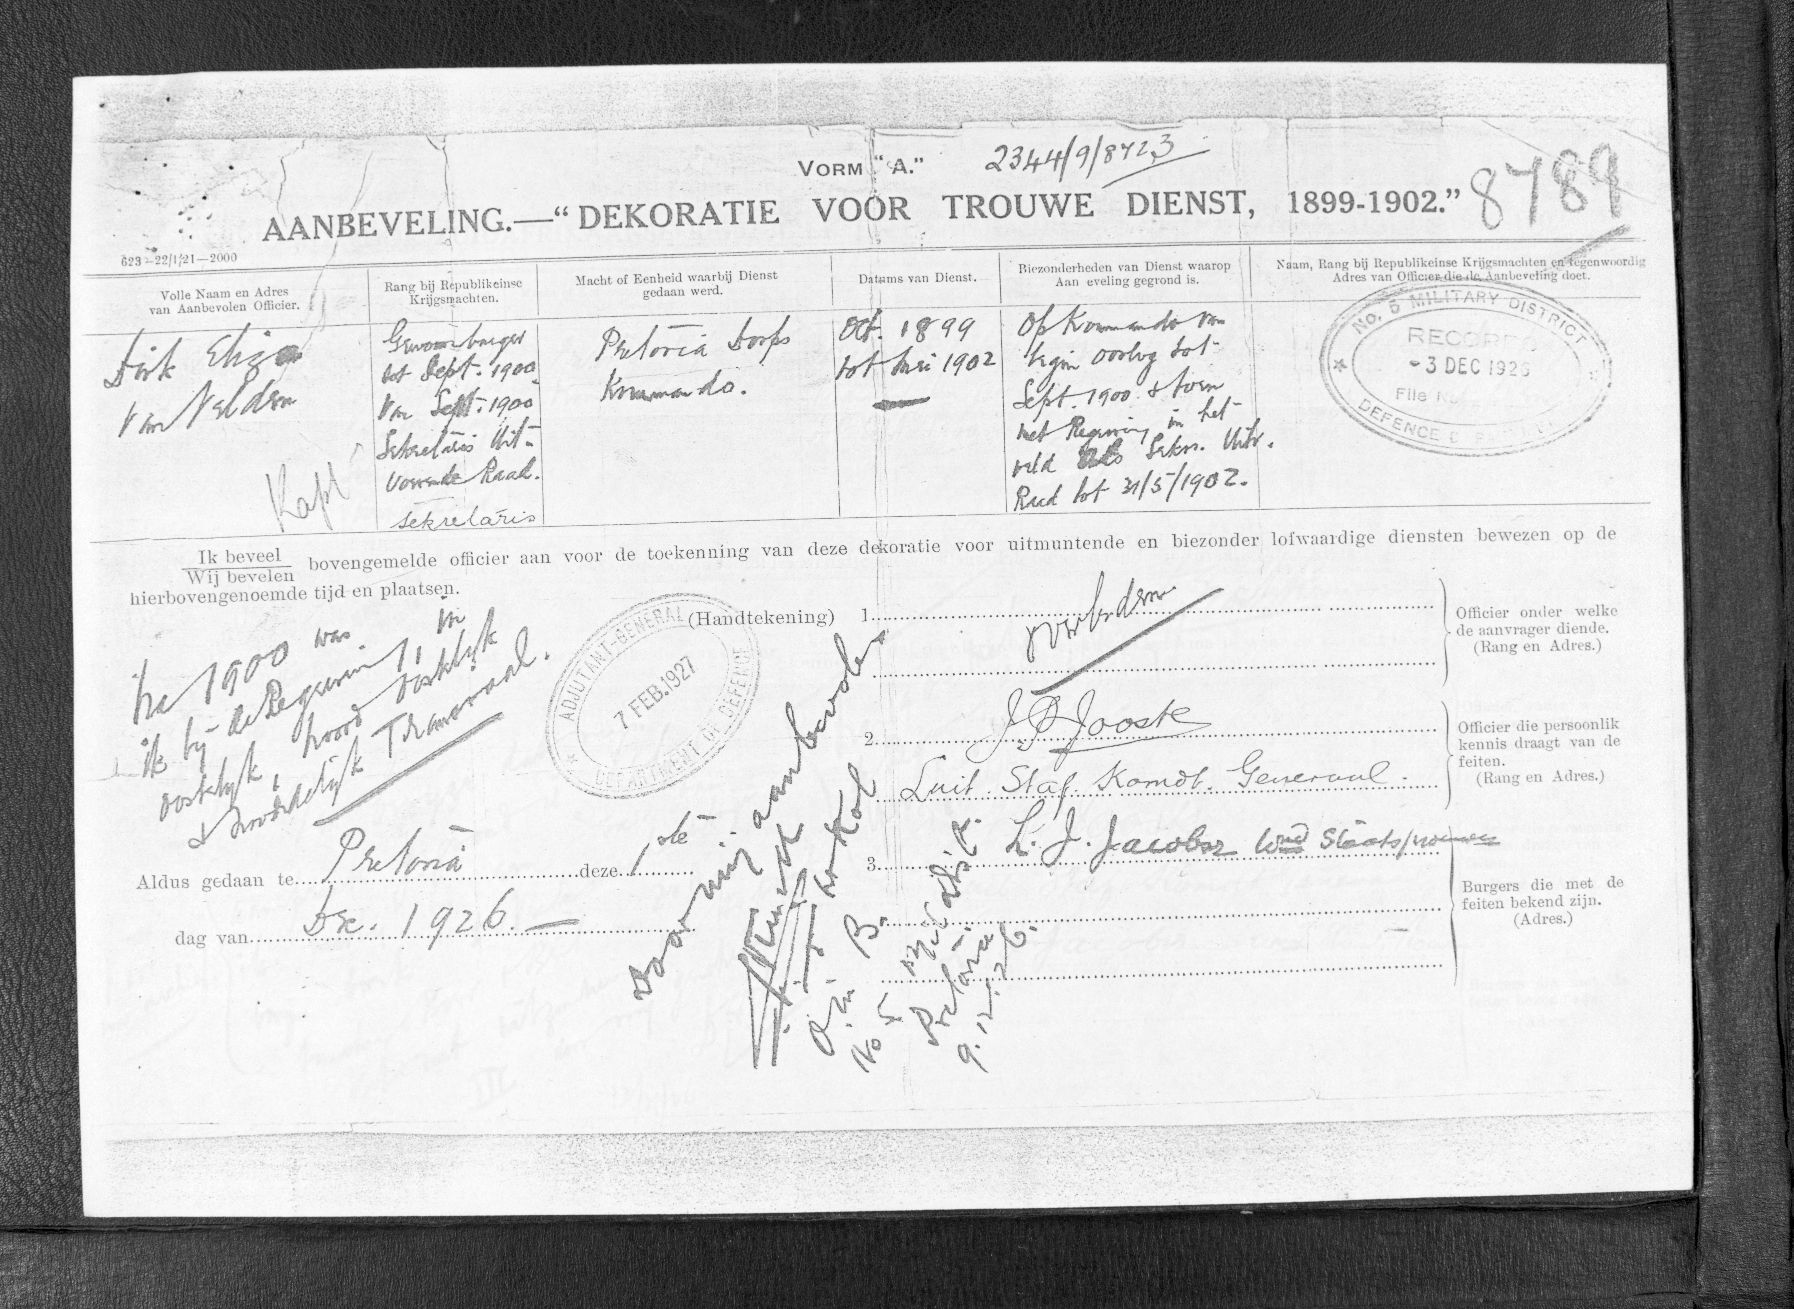 VORM "A."
2344/9/8723
8789
AANBEVELING.—"DEKORATIE VOOR TROUWE DIENST, 1899-1902."
623—22/1/21—2000
Volle Naam en Adres
van Aanbevolen Officier.
Rang bij Republikeinse
Krijgsmachten.
Macht of Eenheid waarbij Dienst
gedaan werd.
Datums van Dienst.
Biezonderheden van Dienst waarop
Aan eveling gegrond is.
Naam, Rang bij Republikeinse Krijgsmachten en tegenwoordig
Adres van Officier die de Aanbeveling doet.
Dirk Eliza
van Velden
Kapt
Gewoon burger
tot Sept. 1900
Van Sept. 1900
Sekretaris Uit-
voerende Raad.
sekretaris
Pretoria Dorps
Kommando.
Oct. 1899
tot Mei 1902
Op Kommando van
begin oorlog tot
Sept. 1900 & toen
met Regering in het
veld als Sekr. Uitv.
Raad tot 31/5/1902.
No. 5 MILITARY DISTRICT
RECORDS
-3 DEC 1926
File No
DEFENCE DEPARTMENT
Ik beveel
Wij bevelen
bovengemelde officier aan voor de toekenning van deze dekoratie voor uitmuntende en biezonder lofwaardige diensten bewezen op de
hierbovengenoemde tijd en plaatsen.
Na 1900 was
ik bij de Regering, in
oostelijk, noord oostelijk
& noordelijk Transvaal.
ADJUTANT-GENERAL
7 FEB. 1927
DEPARTMENT OF DEFENCE
(Handtekening) 1.
overleden
Officier onder welke
de aanvrager diende.
(Rang en Adres.)
2.
J P Jooste
Luit. Staf. Komdt. Generaal.
Officier die persoonlik
kennis draagt van de
feiten.
(Rang en Adres.)
3.
L. J. Jacobsz Wnd Staatsprocureur
Burgers die met de
feiten bekend zijn.
(Adres.)
Aldus gedaan te Pretoria deze 1ste
dag van Dec. 1926.
Door mij aanbevolen
Lt Kol
O. i/c B.
No 5 Mil. distr.
Pretoria.
9.12.26.